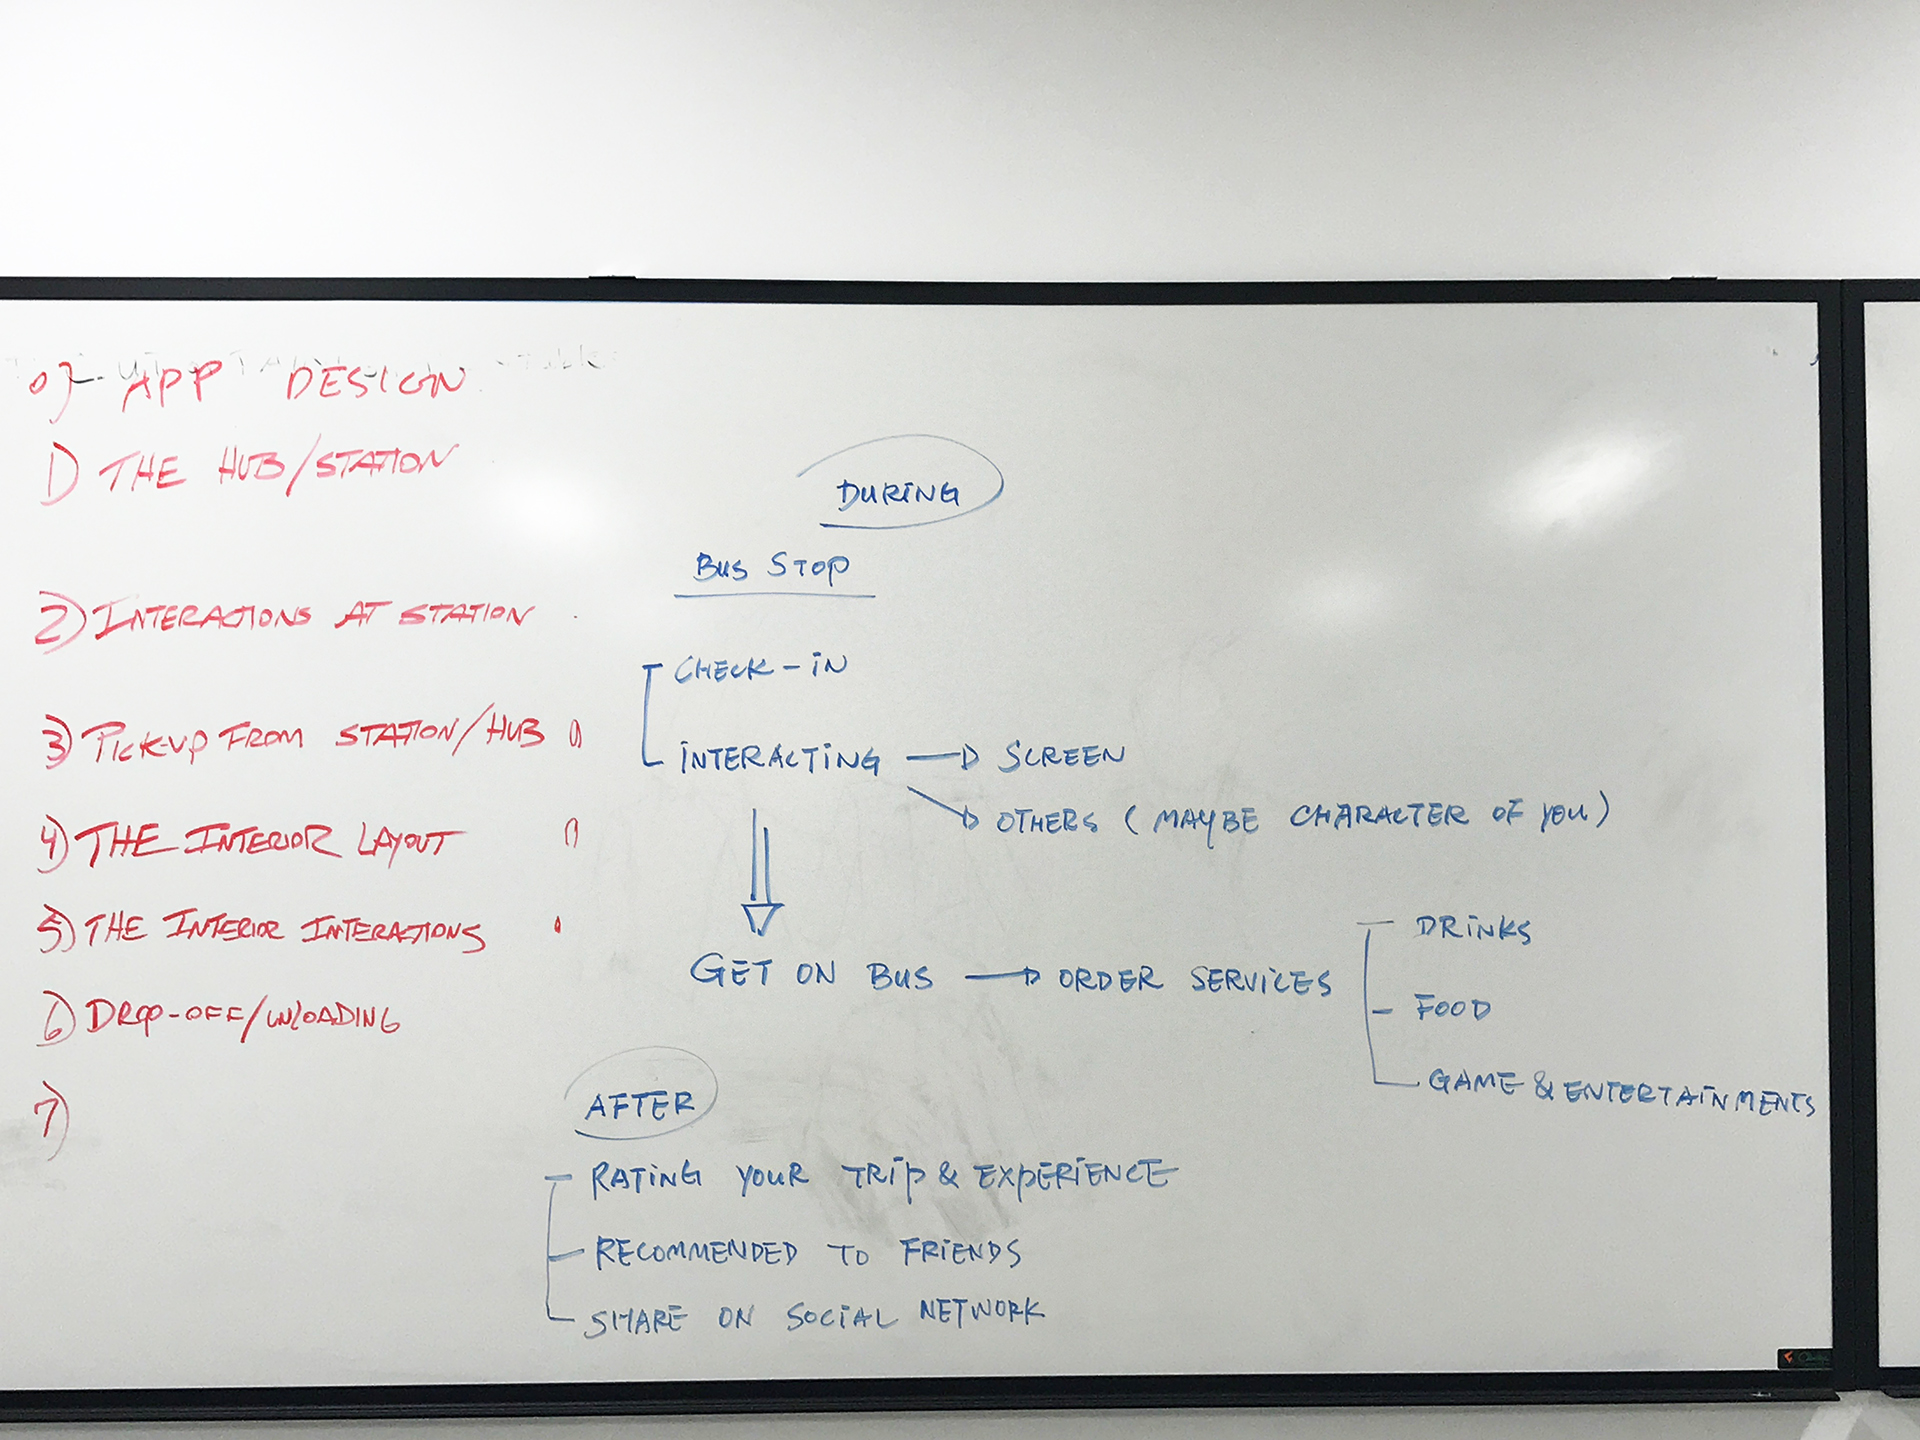 0) APP DESIGN
1) THE HUB/STATION
2) INTERACTIONS AT STATION
3) PICK-UP FROM STATION/HUB
4) THE INTERIOR LAYOUT
5) THE INTERIOR INTERACTIONS
6) DROP-OFF/UNLOADING
7)
DURING
BUS STOP
CHECK-IN
INTERACTING → SCREEN
OTHERS (MAYBE CHARACTER OF YOU)
GET ON BUS → ORDER SERVICES
DRINKS
FOOD
GAME & ENTERTAINMENTS
AFTER
RATING YOUR TRIP & EXPERIENCE
RECOMMENDED TO FRIENDS
SHARE ON SOCIAL NETWORK